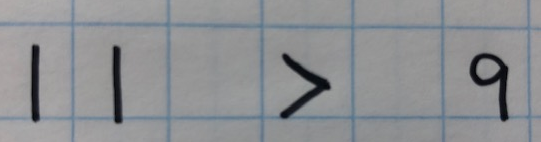 11 > 9